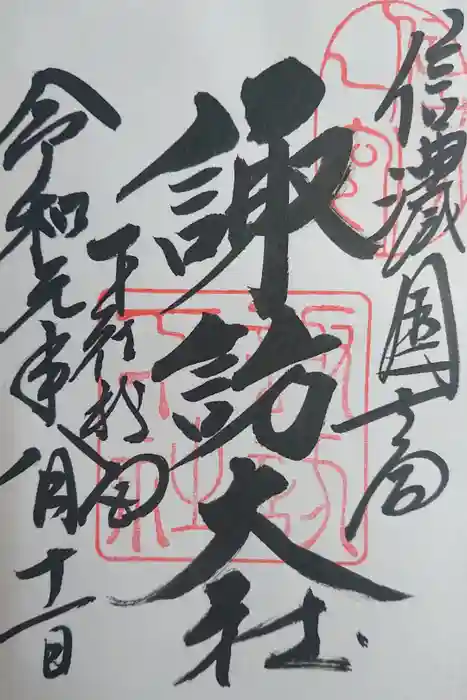 信濃國一宮
諏訪大社
下社秋宮
令和元年八月十一日